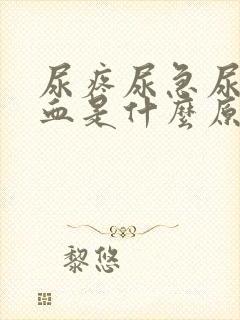 尿疼尿急尿
血是什麼原
黎悠